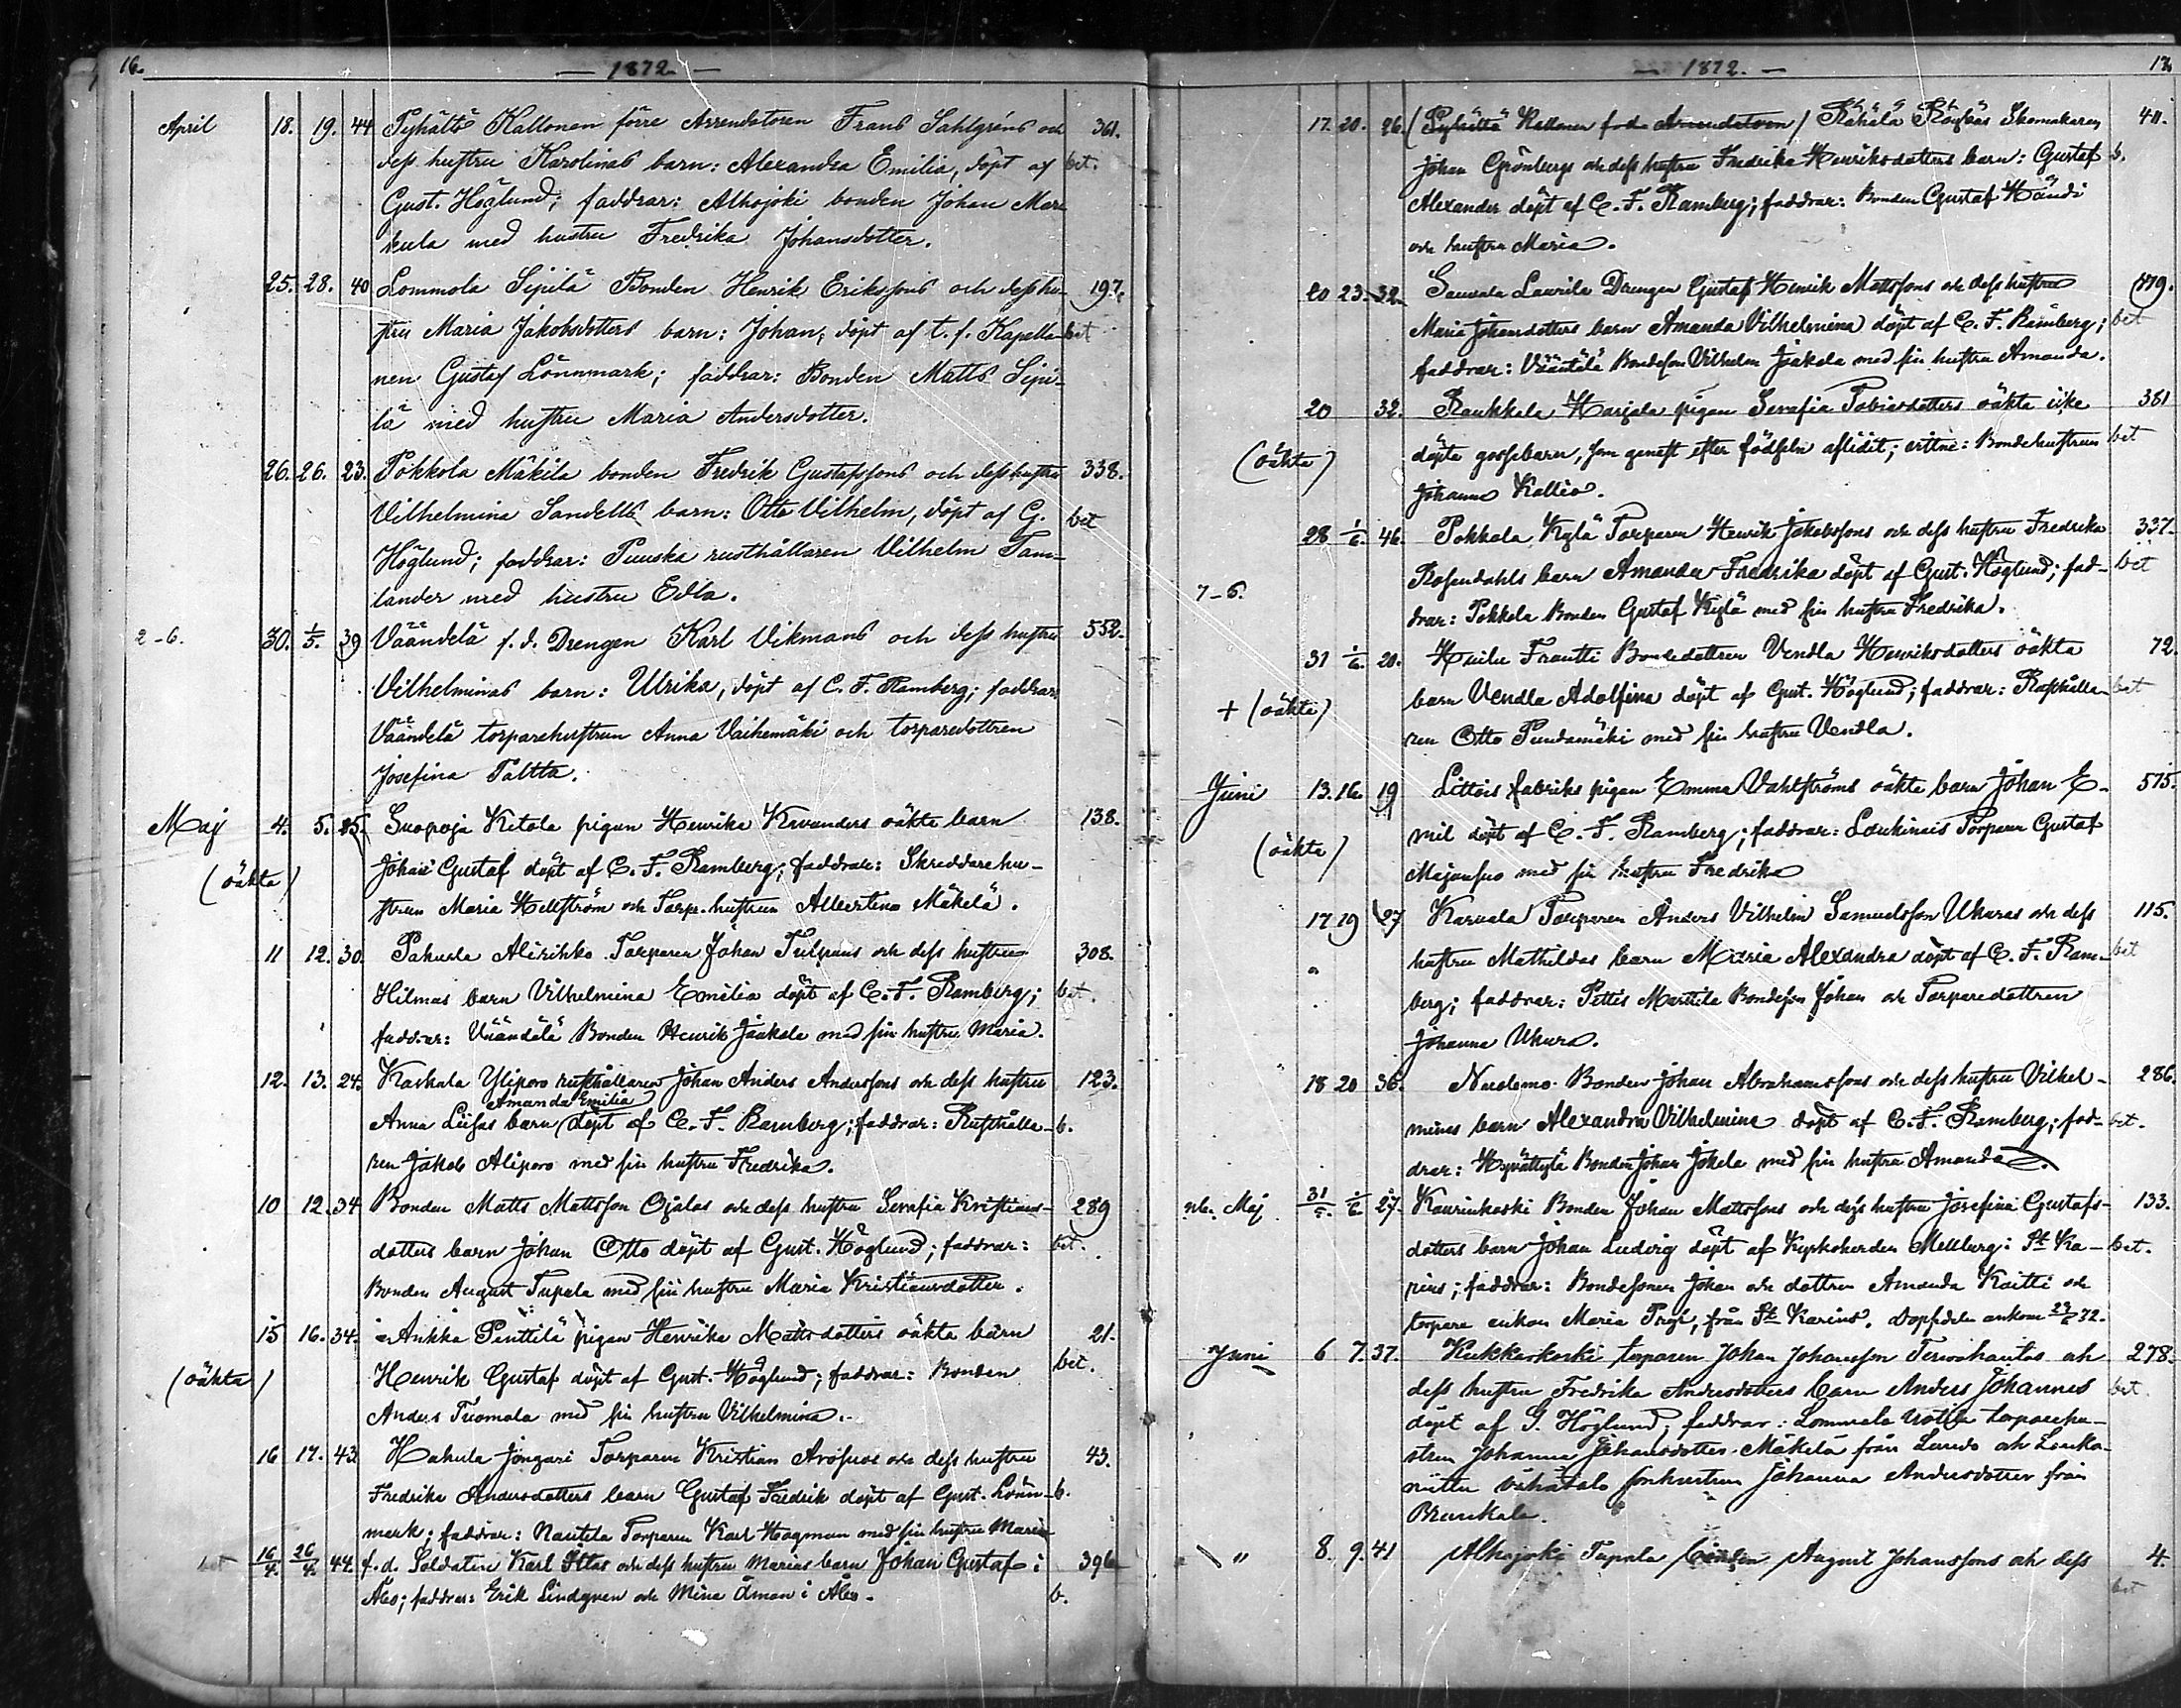 16.
— 1872 —
April 18. 19. 44 Pyhältö Kallonen förre Arrendatoren Frans Sahlgréns och 361.
dess hustru Karolinas barn: Alexandra Emilia, döpt af bet.
Gust. Höglund; faddrar: Alhojoki bonden Johan Mar-
kula med hustru Fredrika Johansdotter.
25. 28. 40 Lommola Sipilä Bonden Henrik Erikssons och dess hu- 197.
stru Maria Jakobsdotters barn: Johan, döpt af t. f. Kapella- bet
nen Gustaf Lönnmark; faddrar: Bonden Matts Sipi-
lä med hustru Maria Andersdotter.
26. 26. 23. Pokkola Mäkilä bonden Fredrik Gustafssons och dess hustru 338.
Vilhelmina Sandells barn: Otto Vilhelm, döpt af G. bet
Höglund; faddrar: Puuska rusthållaren Vilhelm Tam-
lander med hustru Edla.
2-6. 30. 1/5. 39 Väändelä f. d. Drengen Karl Vikmans och dess hustru 552.
Vilhelminas barn: Ulrika, döpt af C. F. Ramberg; faddrar:
Väändelä torparehustrun Anna Vaihemäki och torparedottren
Josefina Paltta.
Maj 4. 5. 25. Suopoja Ketola pigan Henrika Kevanders oäkta barn 138.
(oäkta) Johan Gustaf döpt af C. F. Ramberg; faddrar: Skreddarehu-
strun Maria Hellström och Torp. hustrun Albertina Mäkelä.
11 12. 30. Pahurla Alirihko Torparen Johan Tulpans och dess hustru 308.
Hilmas barn Vilhelmina Emilia döpt af C. F. Ramberg; bet.
faddrar: Väändelä Bonden Henrik Jaakola med sin hustru Maria.
12. 13. 24. Kaskala Yliporo rusthållaren Johan Anders Anderssons och dess hustru 123.
Amanda Emilia
Anna Lisas barn döpt af C. F. Ramberg; faddrar: Rusthålla- b.
ren Jakob Aliporo med sin hustru Fredrika.
10 12. 34 Bonden Matts Mattsson Ojalas och dess hustru Serafia Kristians- 289
dotters barn Johan Otto döpt af Gust. Höglund; faddrar: bet.
Bonden August Tupala med sin hustru Maria Kristiansdotter.
15 16. 34. Ankka Penttilä pigan Henrika Mattsdotters oäkta barn 21.
(oäkta) Henrik Gustaf döpt af Gust. Höglund; faddrar: Bonden bet.
Anders Tuomola med sin hustru Vilhelmina.
16 17. 43 Hakula Jongari Torparen Kristian Arosuos och dess hustru 43.
Fredrika Andersdotters barn Gustaf Fredrik döpt af Gust. Lönn- b.
mark; faddrar: Nautela Torparen Karl Hagman med sin hustru Maria
bet 16/4. 26/4. 44. f. d. Soldaten Karl Iltas och dess hustru Marias barn Johan Gustaf i 396
Åbo; faddrar: Erik Lindgren och Mina Öman i Åbo. b.
— 1872. — 17.
17. 20. 26. (Pyhältö Kallonen förd. Arrendatoren) Rähälä Skomakaren 411.
Johan Grönbergs och dess hustru Fredrika Henriksdotters barn: Gustaf b.
Alexander döpt af C. F. Ramberg; faddrar: Bonden Gustaf Händi
och hustru Maria.
20 23. 32. Saurala Laurila Drengen Gustaf Henrik Mattssons och dess hustru 479.
Maria Johansdotters barn Amanda Vilhelmina döpt af C. F. Ramberg; bet
faddrar: Väändelä Bondeson Vilhelm Jaakola med sin hustru Amanda.
20 32. Raukkala Harjola pigan Serafia Tobiasdotters oäkta icke 381
(oäkta) döpta gossebarn, som genast efter födseln aflidit; vittne: Bondehustrun bet
Johanna Kallio.
28 1/6. 46. Pokkola Kylä Torparen Henrik Jakobssons och dess hustru Fredrika 337.
7-6. Rosendahls barn Amanda Fredrika döpt af Gust. Höglund; fad- bet
drar: Pokkola Bonden Gustaf Kylä med sin hustru Fredrika.
31 1/6. 20. Frantti Bondedottren Vendla Henriksdotters oäkta 72.
+ (oäkta) barn Vendla Adolfina döpt af Gust. Höglund; faddrar: Rusthålla- bet
ren Otto Puudamäki med sin hustru Vendla.
Juni 13. 16. 19 Littois fabriks pigan Emma Vahlströms oäkta barn Johan E- 575.
(oäkta) mil döpt af C. F. Ramberg; faddrar: Loukinais Torparen Gustaf
Majansuo med sin hustru Fredrika
17 19 27 Karvala Torparen Anders Vilhelm Samuelsson Ukuras och dess 115.
hustru Mathildas barn Maria Alexandra döpt af C. F. Ram- bet
berg; faddrar: Pettis Marttila Bondeson Johan och Torparedottren
Johanna Ukura.
18 20 36. Nuolemo Bonden Johan Abrahamssons och dess hustru Vilhel- 286.
minas barn Alexandra Vilhelmina döpt af C. F. Ramberg; fad- bet.
drar: Hyvättylä Bonden Johan Jokela med sin hustru Amanda.
nb. Maj 31/5. 2/6 27. Kaurinkoski Bonden Johan Mattssons och dess hustru Josefina Gustafs- 133.
dotters barn Johan Ludvig döpt af Kyrkoherden Mellberg i St Ka- bet.
rins; faddrar: Bondesonen Johan och dottren Amanda Kaitti och
torpare enkan Maria från St Karins. Dopsedeln ankom 72.
Juni 6 7. 37. Kukkarkoski torparen Johan Johansson Tervohaudas och 278.
dess hustru Fredrika Andersdotters barn Anders Johannes bet
döpt af G. Höglund, faddrar: Lommola torparehu-
strun Johanna Johansdotter Mäkelä från Lundo och
sonhustrun Johanna Andersdotter från
Brunkala.
" 8. 9. 41 Alhojoki Tupala bonden August Johanssons och dess 4.
bet